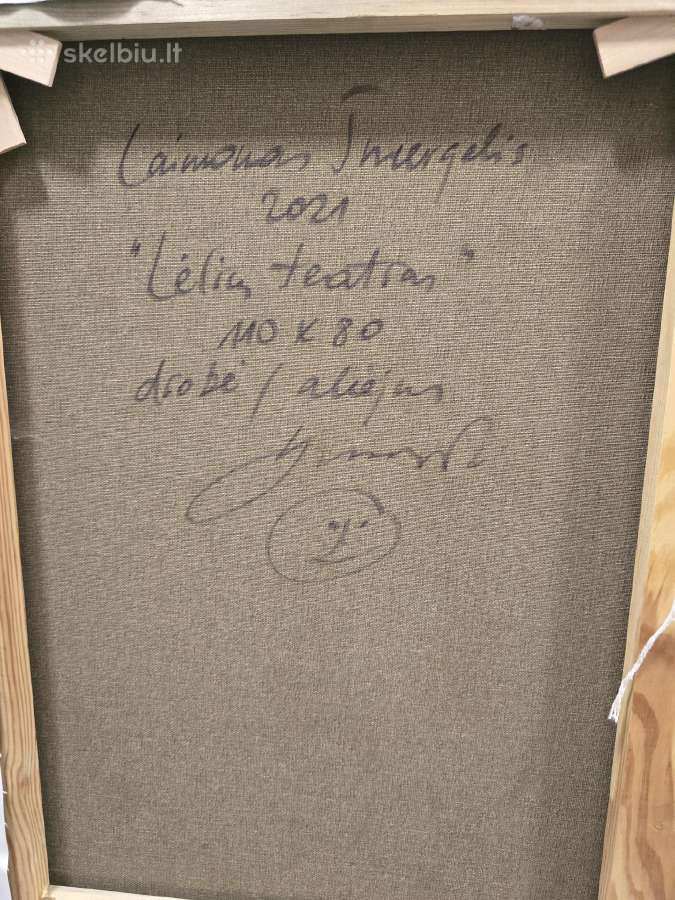 skelbiu.lt
Laimonas Šmergelis
2021
"Lėlių teatras"
110 x 80
drobė / aliejus